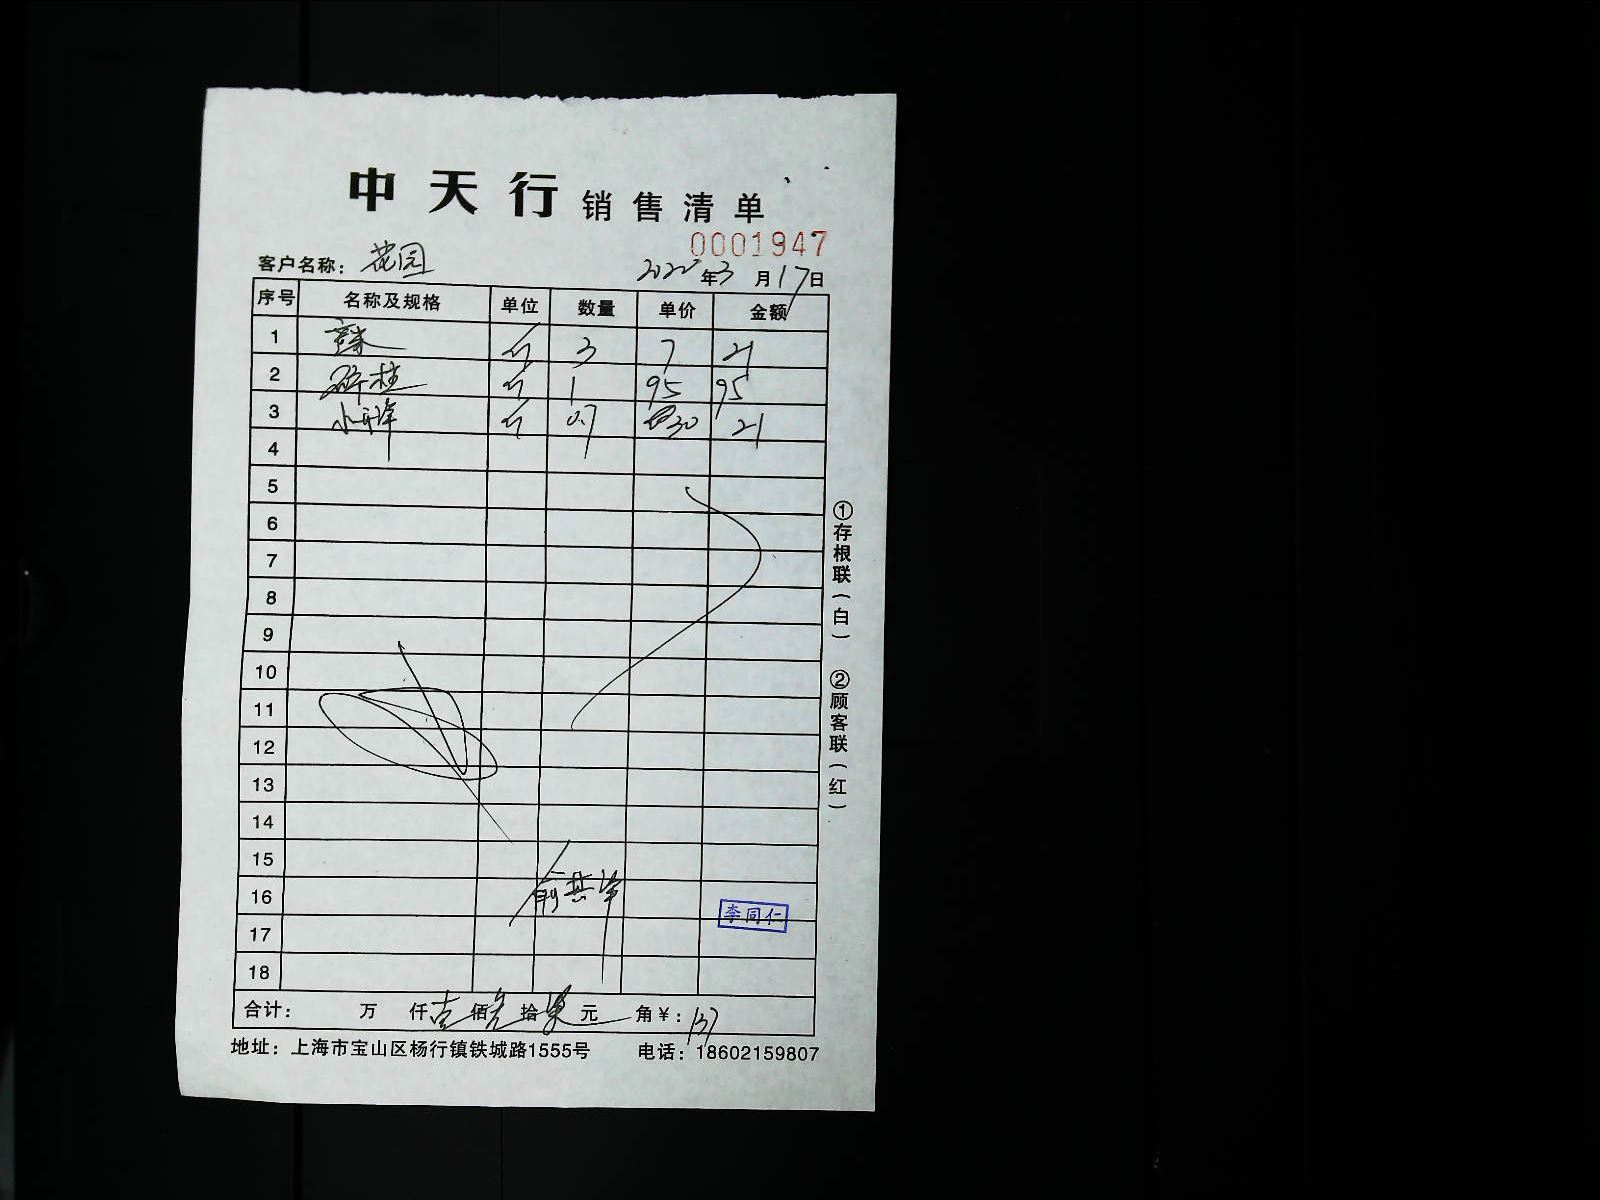 中天行 销售清单
0001947
客户名称：花园 2022年3月17日
序号 名称及规格 单位 数量 单价 金额
1 斤 3 7 21
2 斤 1 95 95
3 斤 0.7 30 21
4
5
6
7
8
9
10
11
12
13
14
15
16
李同仁
17
18
合计： 万 仟壹佰叁拾柒元 角￥：137
地址：上海市宝山区杨行镇铁城路1555号 电话：18602159807
①存根联（白） ②顾客联（红）